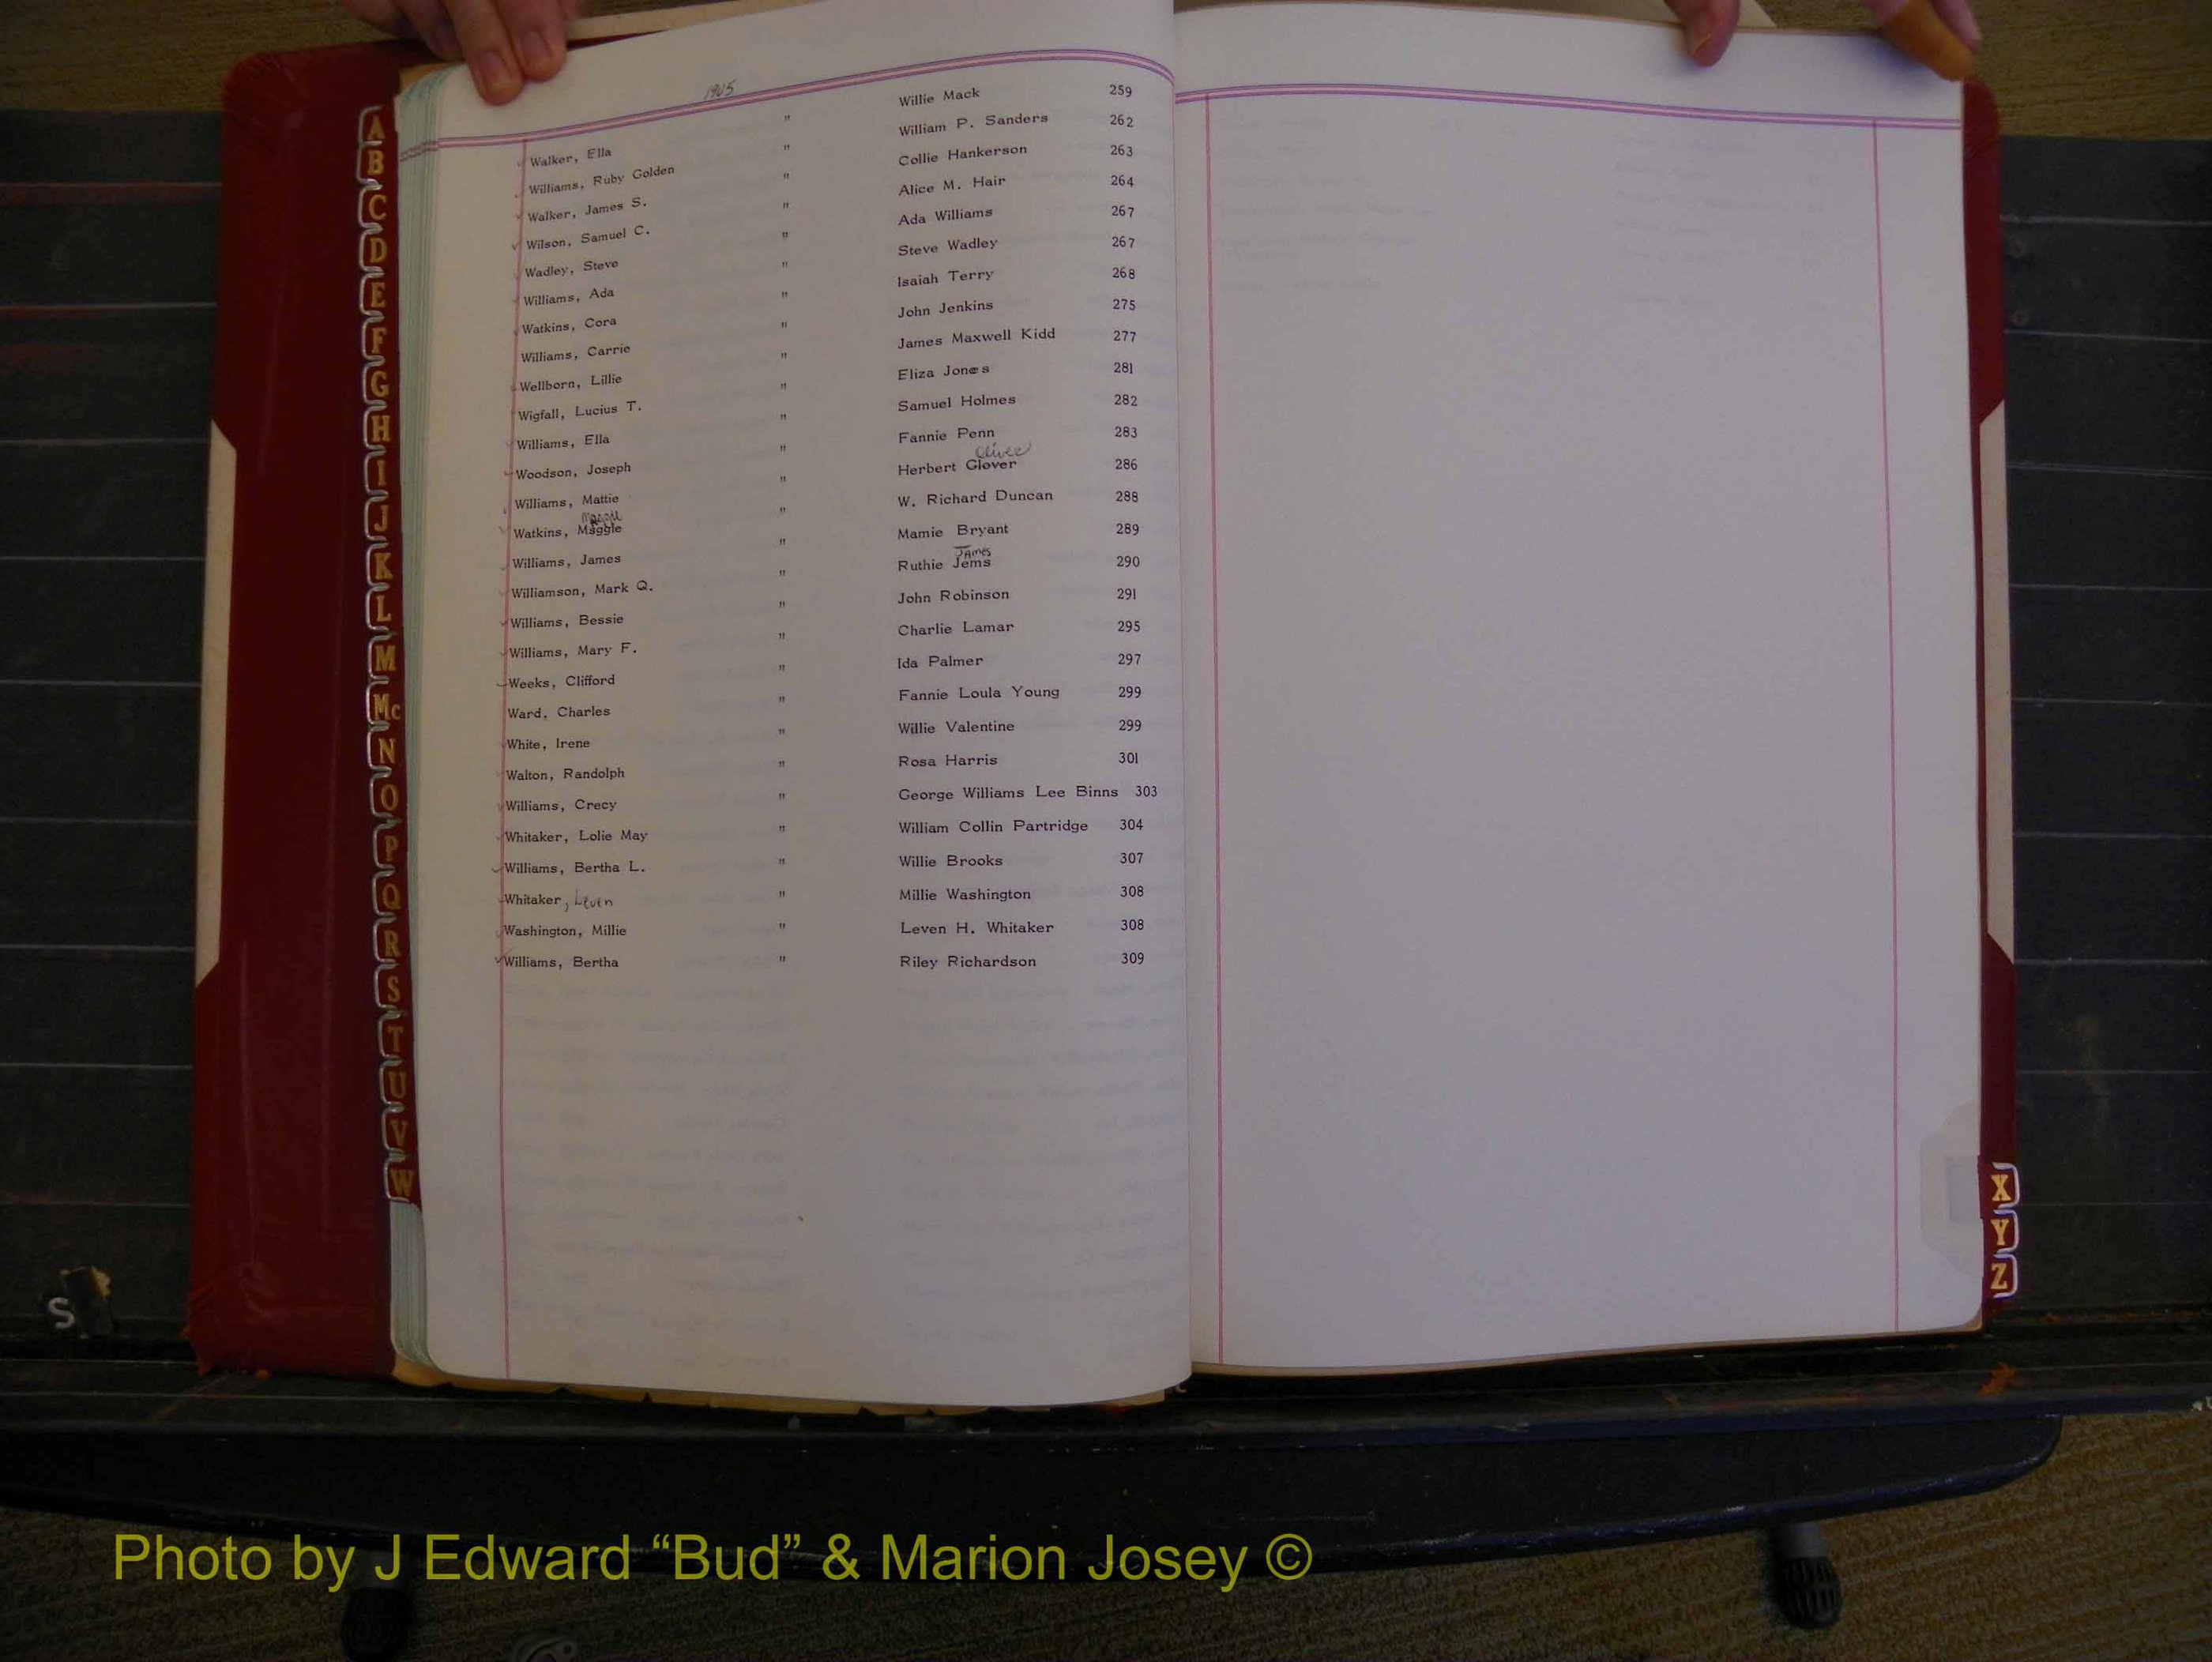 1905
Walker, Ella " Willie Mack 259
Williams, Ruby Golden " William P. Sanders 262
Walker, James S. " Collie Hankerson 263
Wilson, Samuel C. " Alice M. Hair 264
Wadley, Steve " Ada Williams 267
Williams, Ada " Steve Wadley 267
Watkins, Cora " Isaiah Terry 268
Williams, Carrie " John Jenkins 275
Wellborn, Lillie " James Maxwell Kidd 277
Wigfall, Lucius T. " Eliza Jones 281
Williams, Ella " Samuel Holmes 282
Woodson, Joseph " Fannie Penn 283
Oliver
Williams, Mattie " Herbert Glover 286
Maggie
Watkins, Maggie " W. Richard Duncan 288
Williams, James " Mamie Bryant 289
James
Williamson, Mark Q. " Ruthie Jems 290
Williams, Bessie " John Robinson 291
Williams, Mary F. " Charlie Lamar 295
Weeks, Clifford " Ida Palmer 297
Ward, Charles " Fannie Loula Young 299
White, Irene " Willie Valentine 299
Walton, Randolph " Rosa Harris 301
Williams, Crecy " George Williams Lee Binns 303
Whitaker, Lolie May " William Collin Partridge 304
Williams, Bertha L. " Willie Brooks 307
Whitaker, Leven " Millie Washington 308
Washington, Millie " Leven H. Whitaker 308
Williams, Bertha " Riley Richardson 309
A
B
C
D
E
F
G
H
I
J
K
L
M
Mc
N
O
P
Q
R
S
T
U
V
W
X
Y
Z
S
Photo by J Edward “Bud” & Marion Josey ©